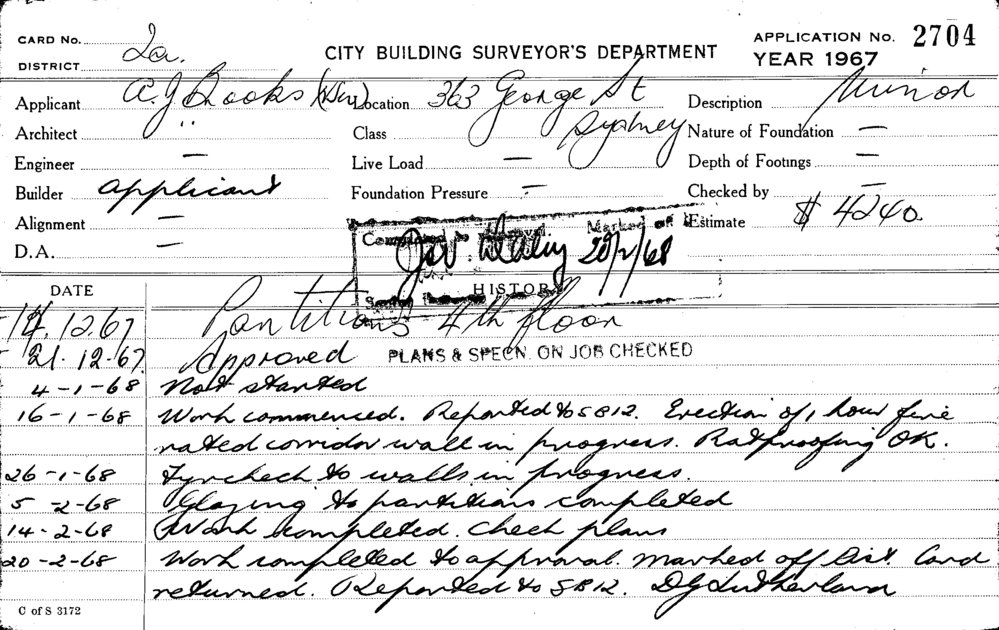 CARD No. 2a.
DISTRICT
CITY BUILDING SURVEYOR'S DEPARTMENT
APPLICATION No. 2704
YEAR 1967
Applicant A.J. Brooks Location 363 George St Sydney Description Minor
Architect " Class Nature of Foundation —
Engineer — Live Load — Depth of Footings —
Builder applicant Foundation Pressure — Checked by —
Alignment — Estimate $ 4240.
D.A. —
Completed to Approval. Marked off 20/2/68
DATE HISTORY
14.12.67 Partitions 4th floor
21.12.67 Approved PLANS & SPECN. ON JOB CHECKED
4-1-68 Not started
16-1-68 Work commenced. Reported to SB12. Erection of 1 hour fire
rated corridor wall in progress. Ratproofing OK.
26-1-68 Fyrcheck to walls in progress.
5-2-68 Glazing to partitions completed
14-2-68 Work completed. Check plans
20-2-68 Work completed to approval. Marked off Dist. Card
returned. Reported to SB12. DJ Sutherland
C of S 3172